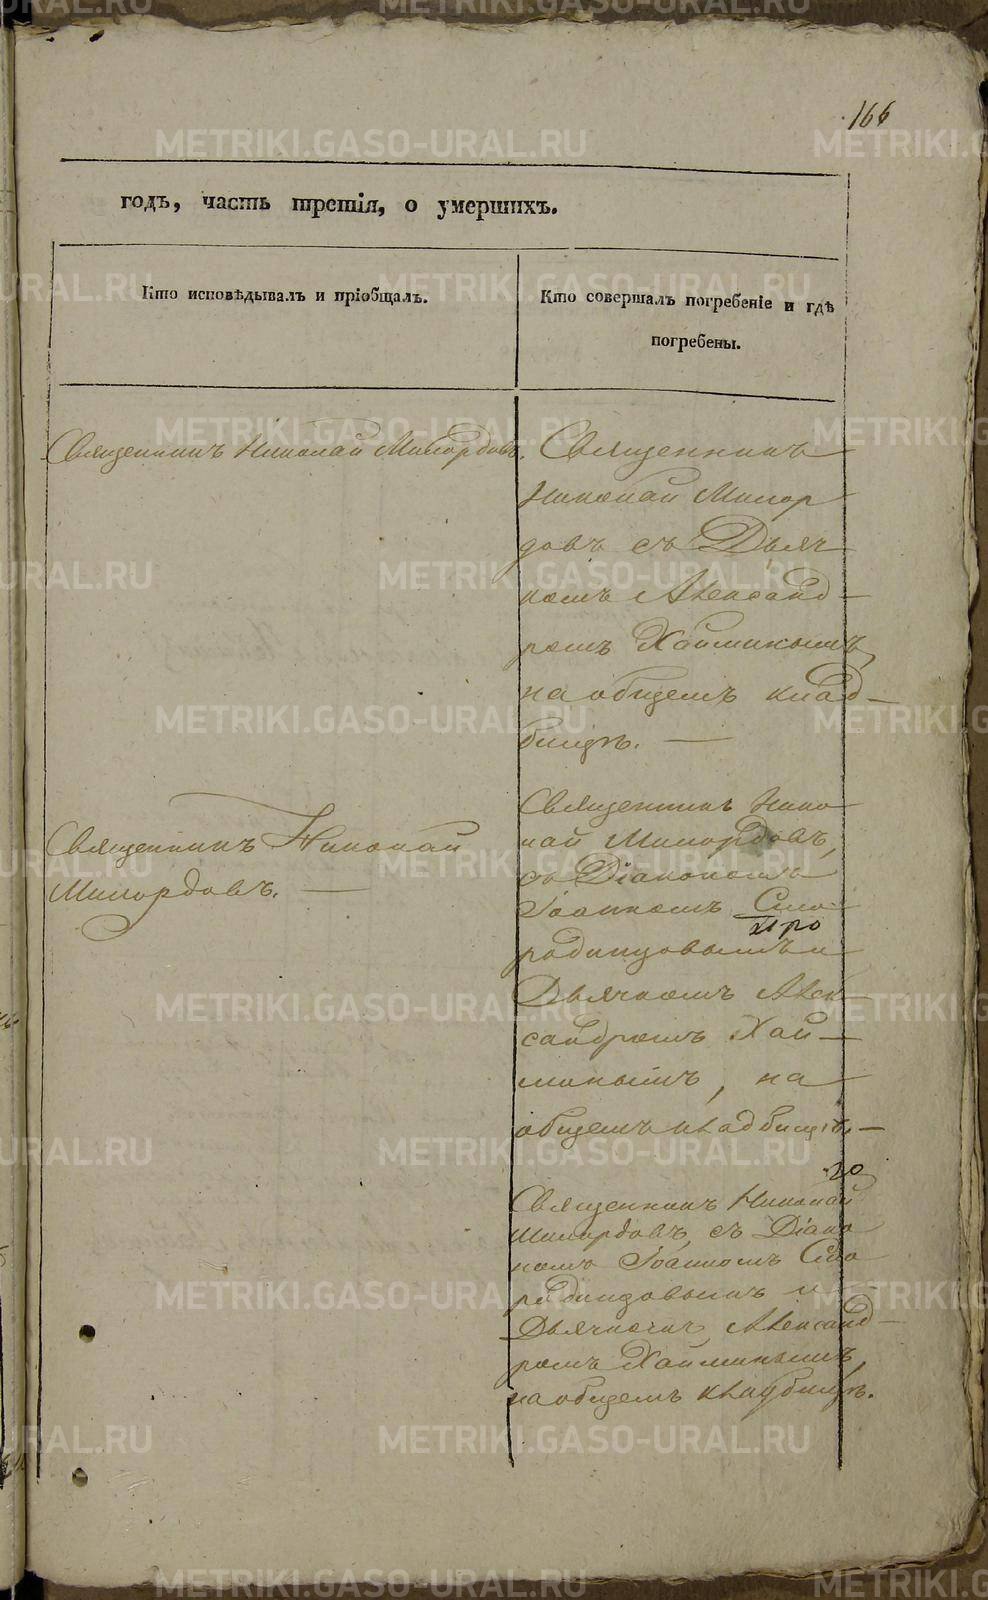 166
годъ, часть третія, о умершихъ.
Кто исповѣдывалъ и пріобщалъ.
Кто совершалъ погребеніе и гдѣ
погребены.
Священникъ Николай Милордовъ.
Священникъ
Николай Милор
довъ съ Дьяч
комъ Александ-
ромъ Хайминымъ,
на общемъ клад-
бищѣ. —
Священникъ Николай
Милордовъ. —
Священникъ Нико
лай Милордовъ,
съ Діакономъ
Іоанномъ Смо
родинцовымъ и
Дьячкомъ Алек-
сандромъ Хай-
минымъ, на
общемъ кладбищѣ. —
Священникъ Николай
Милордовъ, съ Діако
номъ Іоанномъ Смо
родинцовымъ и
Дьячкомъ Александ-
ромъ Хайминымъ,
на общемъ кладбищѣ.
METRIKI.GASO-URAL.RU